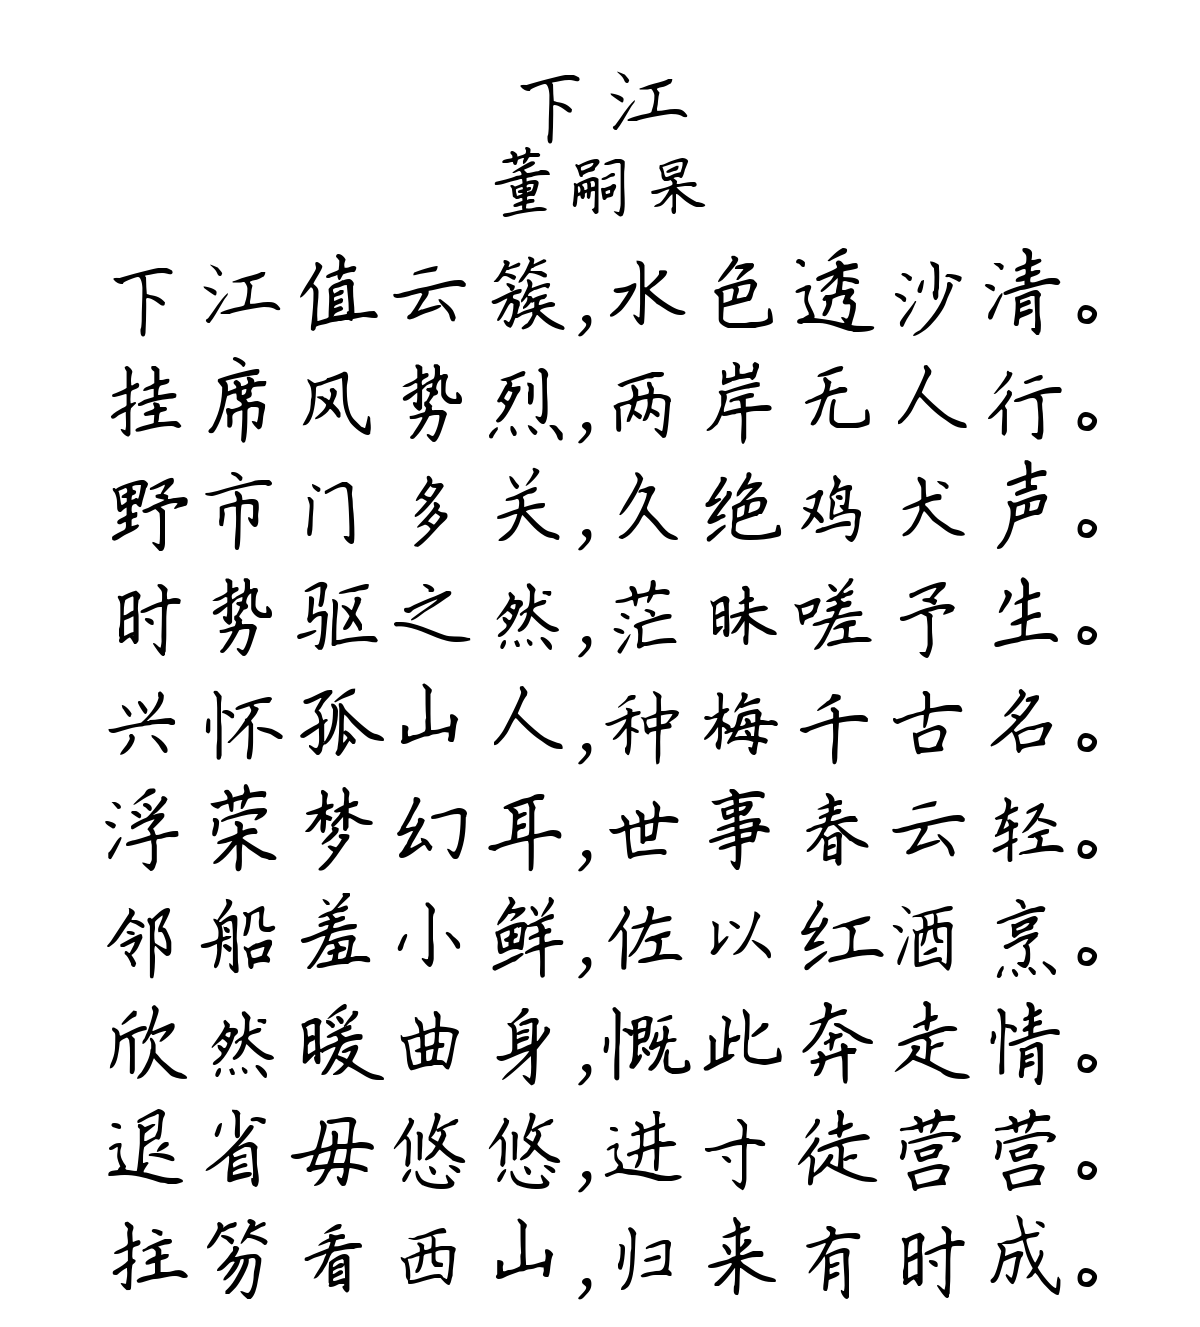 下江
董嗣杲
下江值云簇,水色透沙清。
挂席风势烈,两岸无人行。
野市门多关,久绝鸡犬声。
时势驱之然,茫昧嗟予生。
兴怀孤山人,种梅千古名。
浮荣梦幻耳,世事春云轻。
邻船羞小鲜,佐以红酒烹。
欣然暖曲身,慨此奔走情。
退省毋悠悠,进寸徒营营。
拄笏看西山,归来有时成。